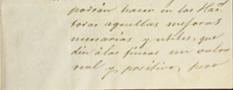 podrán hacer en las Haci
toras aquellas mejoras
necesarias y utiles, que
dén á las fincas un valor
real y, positivo, pero